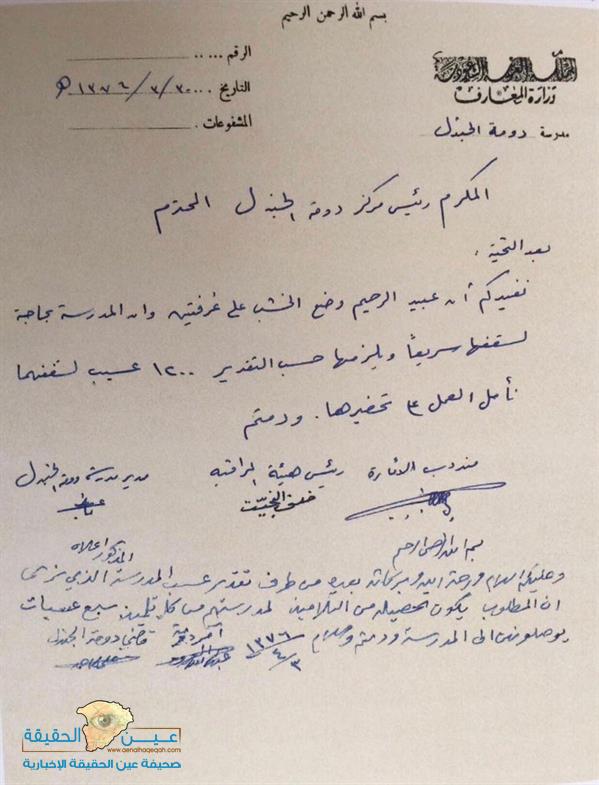 بسم الله الرحمن الرحيم
المملكة العربية السعودية
وزارة المعارف
مدرسة دومة الجندل
الرقم
التاريخ ٣٠/٣/١٣٧٦ هـ
المشفوعات
المكرم رئيس مركز دومة الجندل المحترم
بعد التحية ،
نفيدكم أن عبيد الرحيم وضع الخشب على غرفتين وان المدرسة بحاجة
لسقفها سريعاً ويلزمها حسب التقدير ١٢٠٠ عسيب لسقفهما
نأمل العمل على تحضيرها . ودمتم
مندوب الأمارة رئيس هيئة المراقبة مدير مدرسة دومة الجندل
بسم الله الرحمن الرحيم المذكور اعلاه
وعليكم السلام ورحمة الله وبركاته بعده من طرف تقدير عسب المدرسة الذي نرى
ان المطلوب يكون تحصيله من التلاميذ لمدرستهم من كل تلميذ سبع عسبات
يوصلونهن الى المدرسة ودمتم والسلام ٣/٤/١٣٧٦
قاضي دومة الجندل
عين الحقيقة
www.aenalhaqeqah.com
صحيفة عين الحقيقة الإخبارية